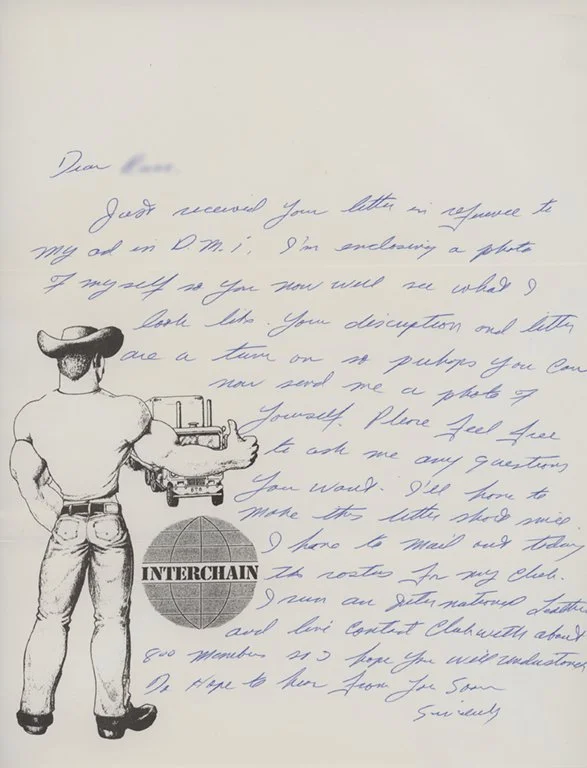 Dear
Just received your letter in refrence to
my ad in D.M.i. I'm enclosing a photo
of myself so you now will see what I
look like. Your discription and letter
are a turn on so perhaps you can
now send me a photo of
yourself. Please feel free
to ask me any questions
you want. I'll have to
make this letter short since
I have to mail out today
the roster for my club.
I run an international leather
and levi contact club with about
800 members so I hope you will understand
Do Hope to hear from you soon
Sincerely
INTERCHAIN